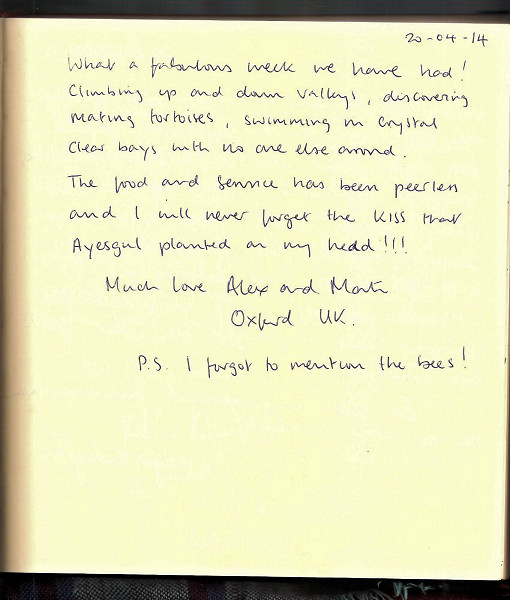 20-04-14
What a fabulous week we have had!
Climbing up and down valleys, discovering
mating tortoises, swimming in crystal
clear bays with no one else around.
The food and service has been peerless
and I will never forget the kiss that
Ayesgul planted on my head!!!
Much love Alex and Martin
Oxford UK.
P.S. I forgot to mention the bees!